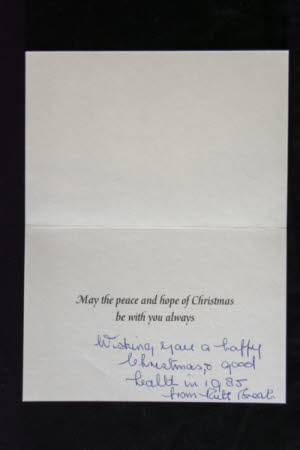 May the peace and hope of Christmas
be with you always
Wishing you a happy
Christmas, & good
health in 1985
from